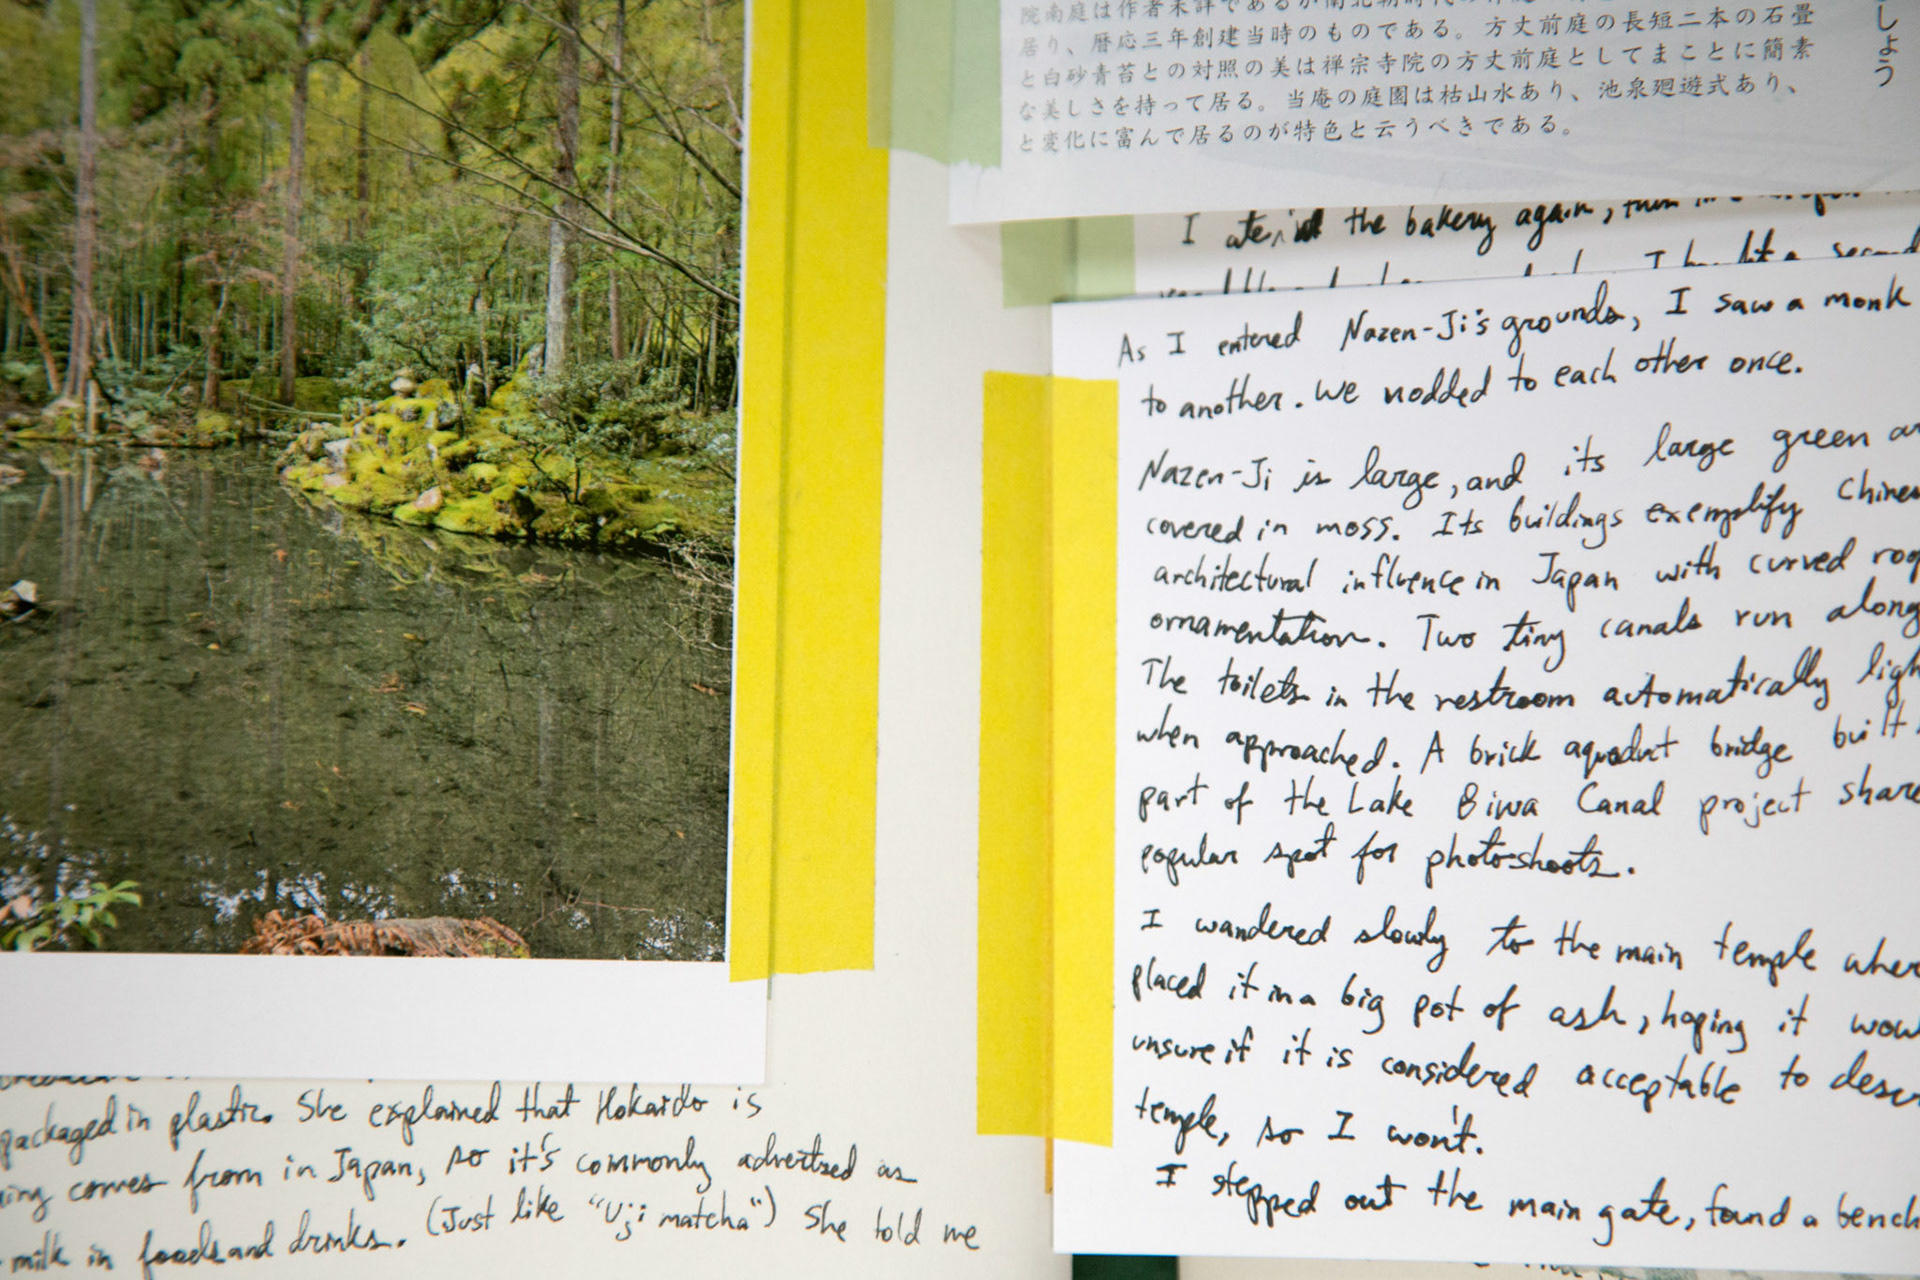 院南庭は作者未詳であるが南北朝時代の
居り、暦応三年創建当時のものである。方丈前庭の長短二本の石畳
と白砂青苔との対照の美は禅宗寺院の方丈前庭としてまことに簡素
な美しさを持って居る。当庵の庭園は枯山水あり、池泉廻遊式あり、
と変化に富んで居るのが特色と云うべきである。
しょう
I ate, at the bakery again, then
I bought a second
As I entered Nazen-Ji's grounds, I saw a monk
to another. We nodded to each other once.
Nazen-Ji is large, and its large green
covered in moss. Its buildings exemplify Chines
architectural influence in Japan with curved roo
ornamentation. Two tiny canals run along
The toilets in the restroom automatically ligh
when approached. A brick aqueduct bridge built
part of the Lake Biwa Canal project share
popular spot for photoshoots.
I wandered slowly to the main temple wher
placed it in a big pot of ash, hoping it wou
unsure if it is considered acceptable to descr
temple, so I won't.
I stepped out the main gate, found a bench
packaged in plastic. She explained that Hokaido is
ing comes from in Japan, so it's commonly advertised as
milk in foods and drinks. (Just like "Uji matcha") She told me